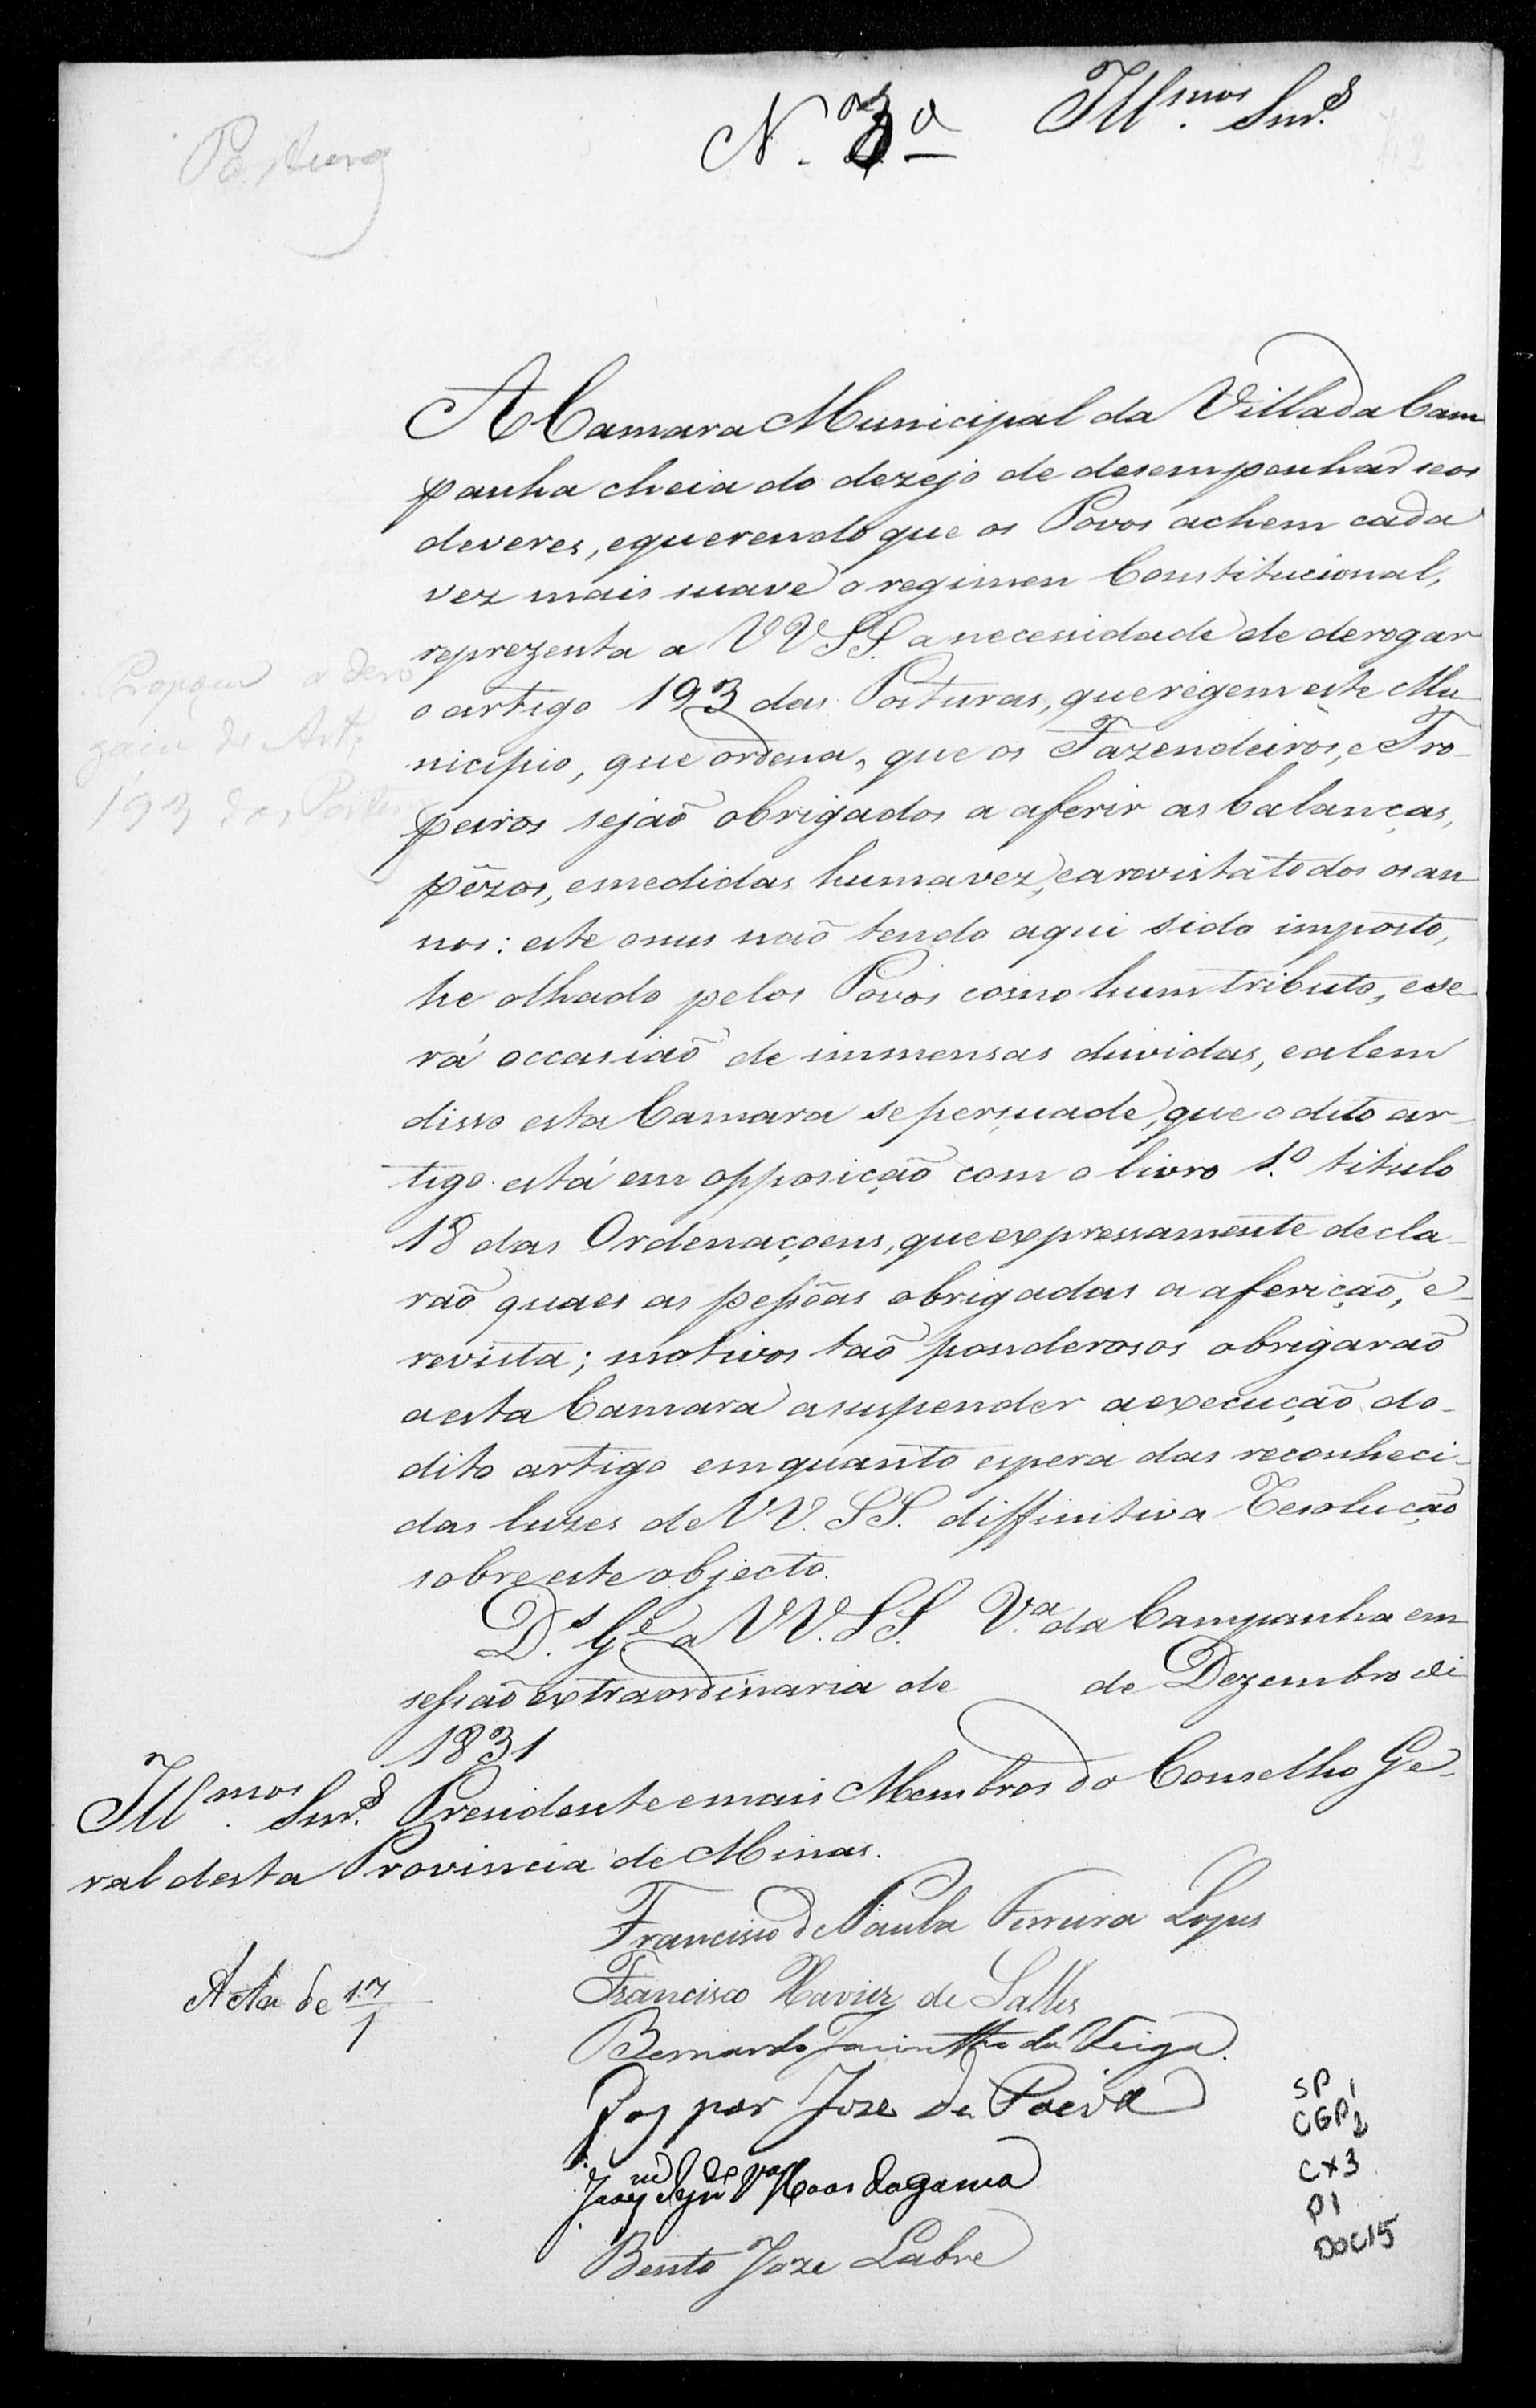 Posturas
N. 3a
Illmos. Snrs.
A Camara Municipal da Villa da Cam
panha cheia do dezejo de desempenhar seos
deveres, e querendo que os Povos achem cada
vez mais suave o regimen Constitucional,
reprezenta a VVSS. a necessidade de derogar
o artigo 193 das Posturas, que regem este Mu
nicipio, que ordena, que os Fazendeiros, e Tro-
peiros sejaõ obrigados a aferir as balanças,
pêzos, e medidas huma vez, e a revista todos os an
nos: este onus naõ tendo aqui sido imposto,
he olhado pelos Povos como hum tributo, e se
rá occasiaõ de immensas duvidas, e alem
disso esta Camara se persuade, que o dito ar-
tigo está em opposição com o livro 1.º titulo
18 das Ordenaçoens, que expressamente decla-
raõ quaes as pessõas obrigadas a aferição, e
revista; motivos taõ ponderosos obrigaraõ
a esta Camara a suspender a execução do
dito artigo em quanto espera das reconheci-
das luzes de VV.SS. diffinitiva Resolução
sobre este objecto.
Ds. Ge. a VV.SS. Va. da Campanha em
sessaõ extraordinaria de de Dezembro de
1831
Illmos. Snrs. Presidente e mais Membros do Conselho Ge-
ral desta Provincia de Minas.
Propoem a dero
gação do Art.
193 das Posturas
Francisco de Paula Ferreira Lopes
Francisco Xavier de Salles
Bernardo Jacintho da Veiga.
Gaspar Jose de Paiva
da gama
Bento Joze Labre
Acta de 17/1
SP 1
CGP2
CX3
P1
DOC15